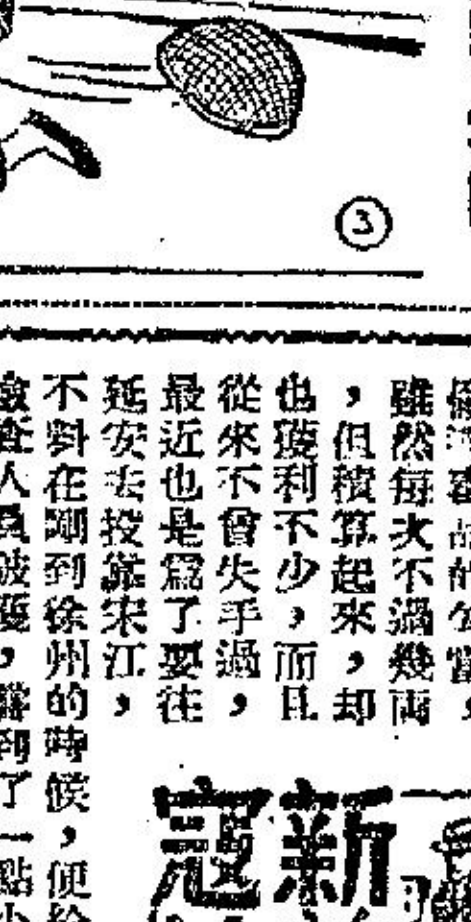 ③
雖然每次不過幾両
，但積算起來，却
也獲利不少，而且
從來不曾失手過，
最近也是爲了要往
延安去投靠宋江，
不料在剛到徐州的時候，便給
檢查人員破獲，
到了一點小
新
冠